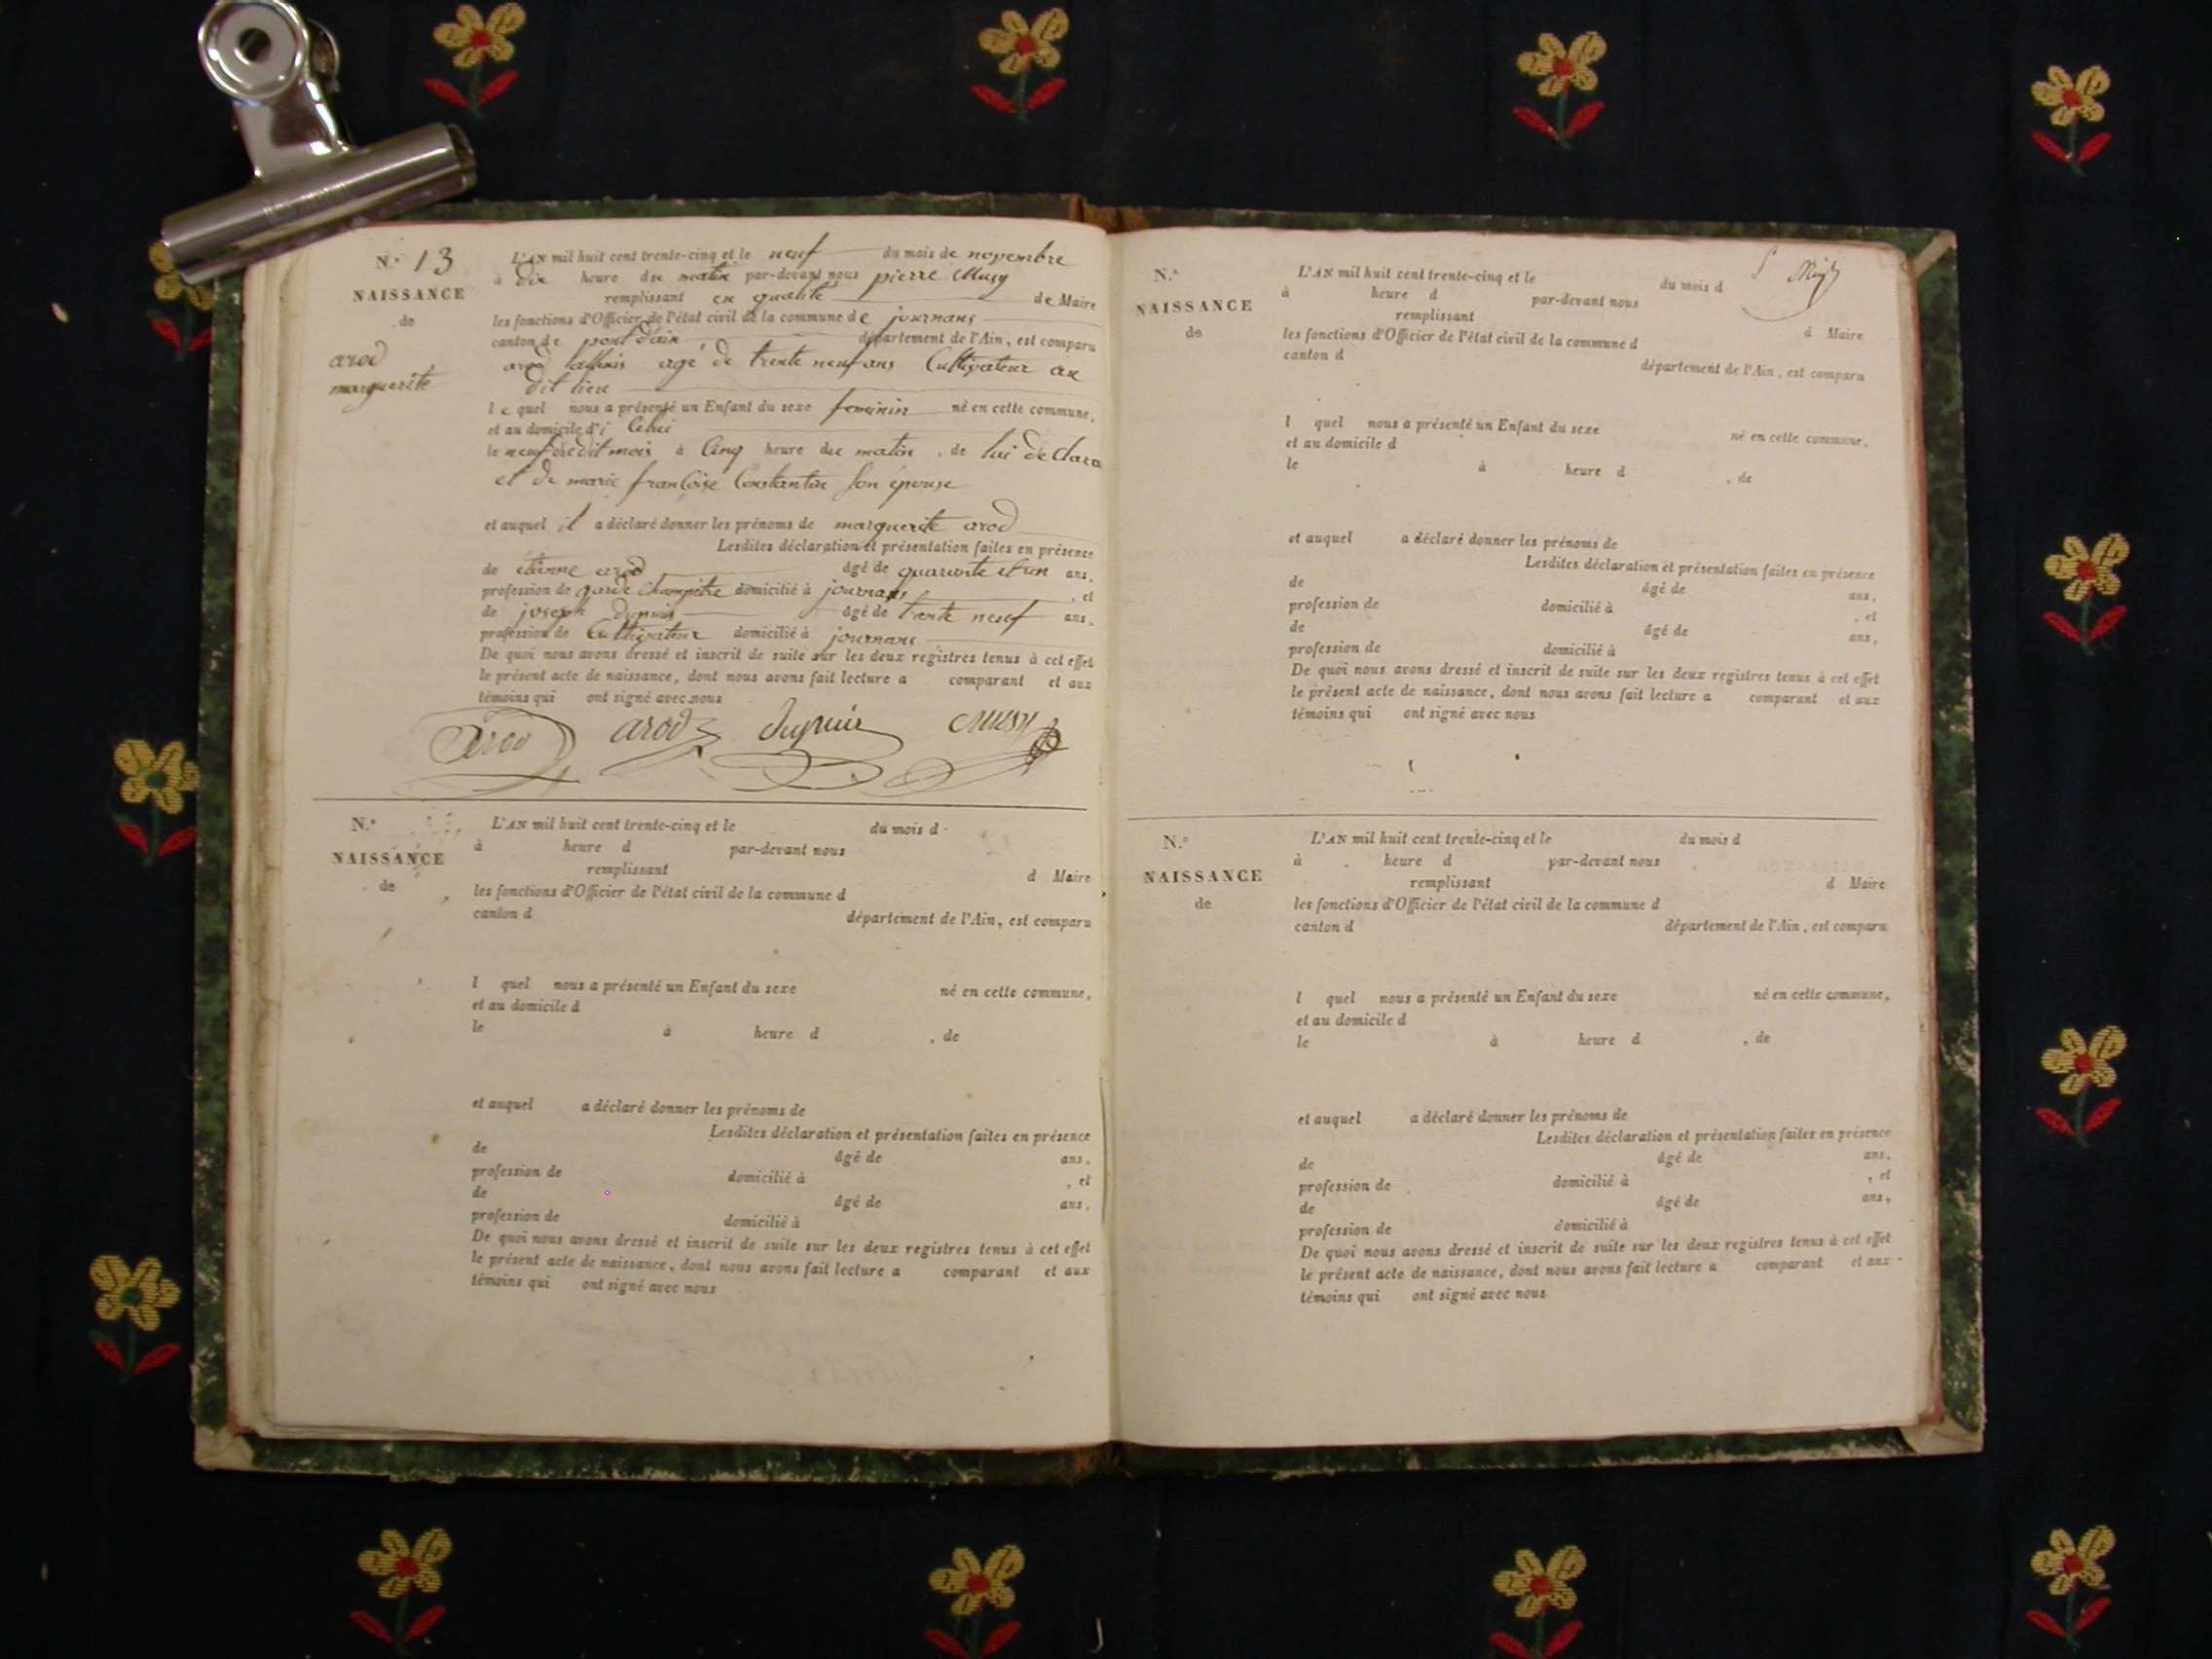 N.° 13
NAISSANCE
de
arod
marguerite
L'AN mil huit cent trente-cinq et le neuf du mois de novembre
à dix heure du matin par-devant nous pierre Musy
remplissant en qualité de Maire
les fonctions d'Officier de l'état civil de la commune de journans
canton de pont d'ain département de l'Ain, est comparu
arod agé de trente neuf ans Cultivateur au
dit lieu
lequel nous a présenté un Enfant du sexe feminin né en cette commune,
et au domicile d
le neuf dudit mois à Cinq heure du matin, de lui déclara
et de marie françoise Constantin son épouse
et auquel il a déclaré donner les prénoms de marguerite arod
Lesdites déclaration et présentation faites en présence
de étienne arod âgé de quarante et un ans,
profession de garde Champêtre domicilié à journans, et
de joseph dupuis âgé de trente neuf ans,
profession de Cultivateur domicilié à journans
De quoi nous avons dressé et inscrit de suite sur les deux registres tenus à cet effet
le présent acte de naissance, dont nous avons fait lecture a comparant et aux
témoins qui ont signé avec nous
Arod arod dupuis MUSY
N.°
NAISSANCE
de
L'AN mil huit cent trente-cinq et le du mois d
à heure d par-devant nous
remplissant d Maire
les fonctions d'Officier de l'état civil de la commune d
canton d département de l'Ain, est comparu
l quel nous a présenté un Enfant du sexe né en cette commune,
et au domicile d
le à heure d , de
et auquel a déclaré donner les prénoms de
Lesdites déclaration et présentation faites en présence
de âgé de ans,
profession de domicilié à , et
de âgé de ans,
profession de domicilié à
De quoi nous avons dressé et inscrit de suite sur les deux registres tenus à cet effet
le présent acte de naissance, dont nous avons fait lecture a comparant et aux
témoins qui ont signé avec nous
N.°
NAISSANCE
de
L'AN mil huit cent trente-cinq et le du mois d
à heure d par-devant nous
remplissant d Maire
les fonctions d'Officier de l'état civil de la commune d
canton d département de l'Ain, est comparu
l quel nous a présenté un Enfant du sexe né en cette commune,
et au domicile d
le à heure d , de
et auquel a déclaré donner les prénoms de
Lesdites déclaration et présentation faites en présence
de âgé de ans,
profession de domicilié à , et
de âgé de ans,
profession de domicilié à
De quoi nous avons dressé et inscrit de suite sur les deux registres tenus à cet effet
le présent acte de naissance, dont nous avons fait lecture a comparant et aux
témoins qui ont signé avec nous
N.°
NAISSANCE
de
L'AN mil huit cent trente-cinq et le du mois d
à heure d par-devant nous
remplissant d Maire
les fonctions d'Officier de l'état civil de la commune d
canton d département de l'Ain, est comparu
l quel nous a présenté un Enfant du sexe né en cette commune,
et au domicile d
le à heure d , de
et auquel a déclaré donner les prénoms de
Lesdites déclaration et présentation faites en présence
de âgé de ans,
profession de domicilié à , et
de âgé de ans,
profession de domicilié à
De quoi nous avons dressé et inscrit de suite sur les deux registres tenus à cet effet
le présent acte de naissance, dont nous avons fait lecture a comparant et aux
témoins qui ont signé avec nous